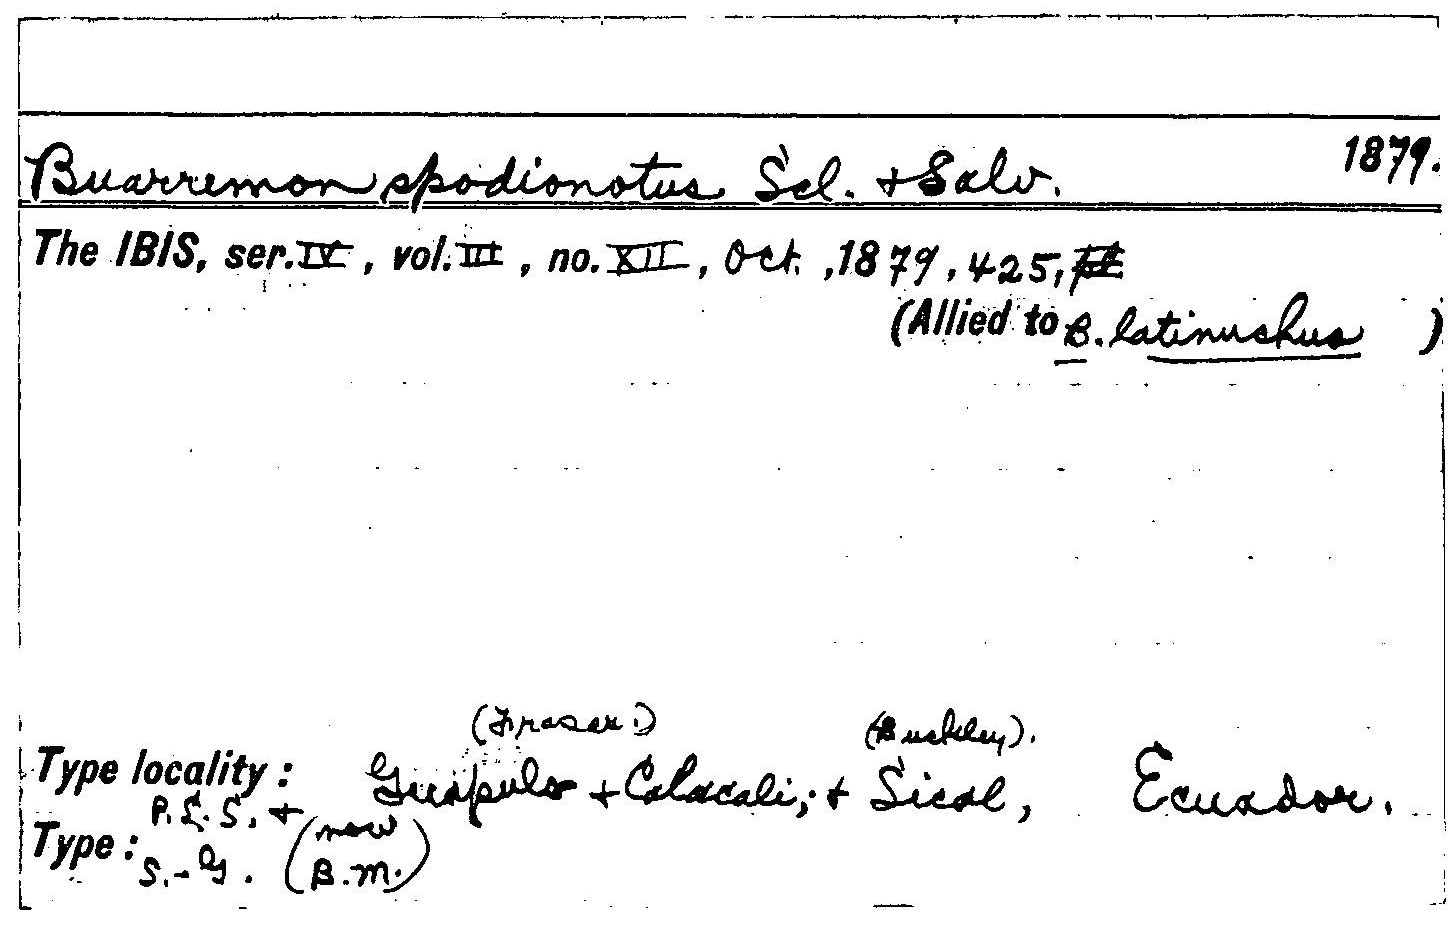 1879.
Buarremon spodionotus Scl. + Salv.
The IBIS, ser. IV, vol. III, no. XII, Oct. ,1879, 425,
(Allied to B. latinuchus )
(Fraser.) (Buckley).
Type locality: Guápulo + Calacali; + Sical, Ecuador.
P.L.S. +
Type: S.-G. (now
B.M.)